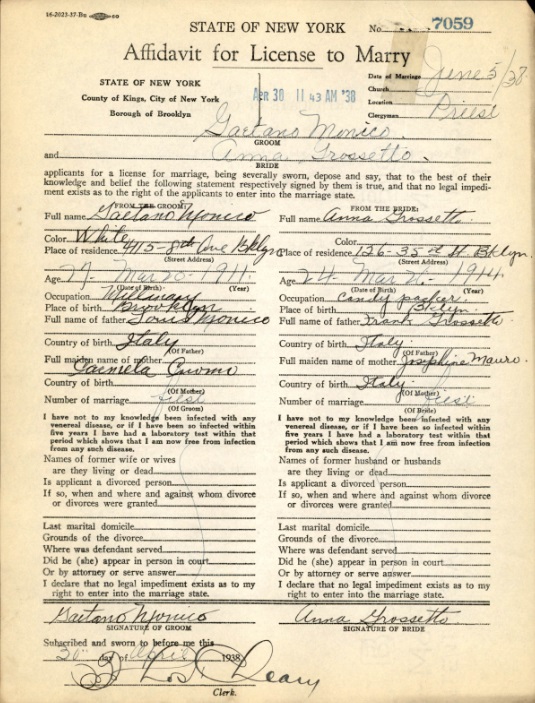 16-2023-37-Bu
STATE OF NEW YORK
No. 7059
Affidavit for License to Marry
STATE OF NEW YORK
County of Kings, City of New York
Borough of Brooklyn
APR 30 11 43 AM '38
Date of Marriage June 5/38
Church
Location
Clergyman Priest
Gaetano Monico
GROOM
and Anna Grossetto.
BRIDE
applicants for a license for marriage, being severally sworn, depose and say, that to the best of their
knowledge and belief the following statement respectively signed by them is true, and that no legal impedi-
ment exists as to the right of the applicants to enter into the marriage state.
FROM THE GROOM:
Full name Gaetano Monico
Color White
Place of residence 4415-8th Ave Bklyn
(Street Address)
Age 27 - Mar 20 - 1911
(Date of Birth) (Year)
Occupation Millinary
Place of birth Brooklyn
Full name of father Louis Monico
Country of birth Italy
(Of Father)
Full maiden name of mother
Carmela Cuomo
Country of birth
(Of Mother)
Number of marriage first
(Of Groom)
I have not to my knowledge been infected with any
venereal disease, or if I have been so infected within
five years I have had a laboratory test within that
period which shows that I am now free from infection
from any such disease.
Names of former wife or wives
are they living or dead
Is applicant a divorced person
If so, when and where and against whom divorce
or divorces were granted
Last marital domicile
Grounds of the divorce
Where was defendant served
Did he (she) appear in person in court
Or by attorney or serve answer
I declare that no legal impediment exists as to my
right to enter into the marriage state.
Gaetano Monico
SIGNATURE OF GROOM
FROM THE BRIDE:
Full name Anna Grossetto
Color
Place of residence 126-35th St Bklyn.
(Street Address)
Age 24 - Mar 1914
(Date of Birth) (Year)
Occupation candy packer.
Place of birth Bklyn.
Full name of father Frank Grossetto
Country of birth Italy
(Of Father)
Full maiden name of mother Josephine Mauro.
Country of birth Italy
(Of Mother)
Number of marriage first
(Of Bride)
I have not to my knowledge been infected with any
venereal disease, or if I have been so infected within
five years I have had a laboratory test within that
period which shows that I am now free from infection
from any such disease.
Names of former husband or husbands
are they living or dead
Is applicant a divorced person
If so, when and where and against whom divorce
or divorces were granted
Last marital domicile
Grounds of the divorce
Where was defendant served
Did he (she) appear in person in court
Or by attorney or serve answer
I declare that no legal impediment exists as to my
right to enter into the marriage state.
Anna Grossetto
SIGNATURE OF BRIDE
Subscribed and sworn to before me this
30th day of April 1938
Leary
Clerk.